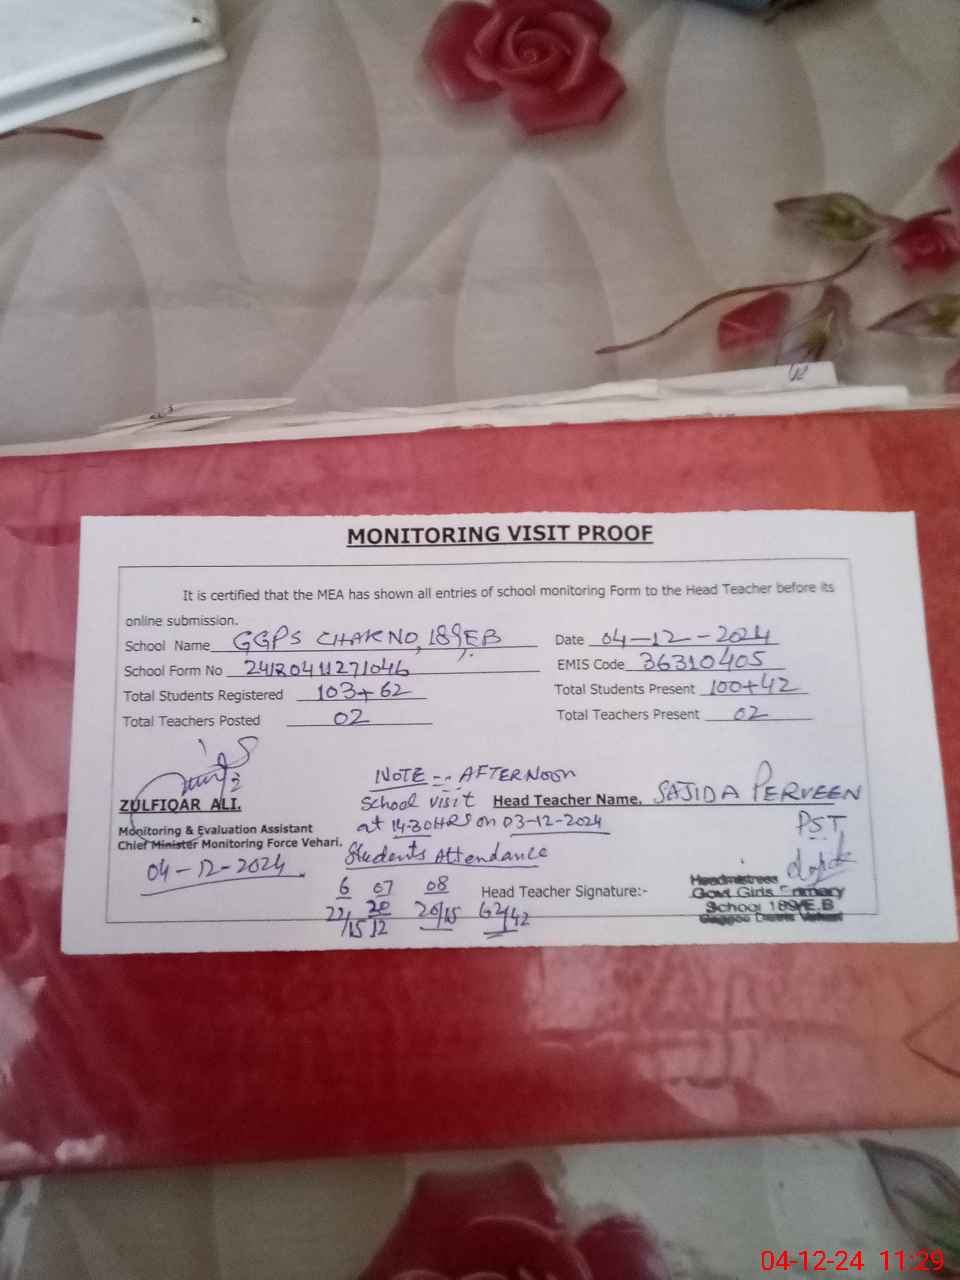 MONITORING VISIT PROOF
It is certified that the MEA has shown all entries of school monitoring Form to the Head Teacher before its
online submission.
School Name GGPS CHAK NO, 189EB Date 04-12-2024
School Form No 24120411271046 EMIS Code 36310405
Total Students Registered 103+62 Total Students Present 100+42
Total Teachers Posted 02 Total Teachers Present 02
NOTE -. AFTERNOON
ZULFIQAR ALI. School visit Head Teacher Name. SAJIDA PERVEEN
Monitoring & Evaluation Assistant at 14-30HRS on 03-12-2024 PST
Chief Minister Monitoring Force Vehari.
04-12-2024 Students Attendance
6 07 08 Head Teacher Signature:-
22/15 20/12 20/15 62/42
Headmistress
Govt. Girls Primary
School 189/E.B
04-12-24 11:29